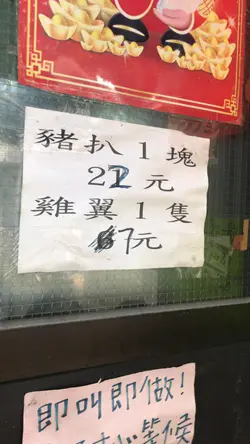 豬扒1塊
22元
雞翼1隻
7元
即叫即做!